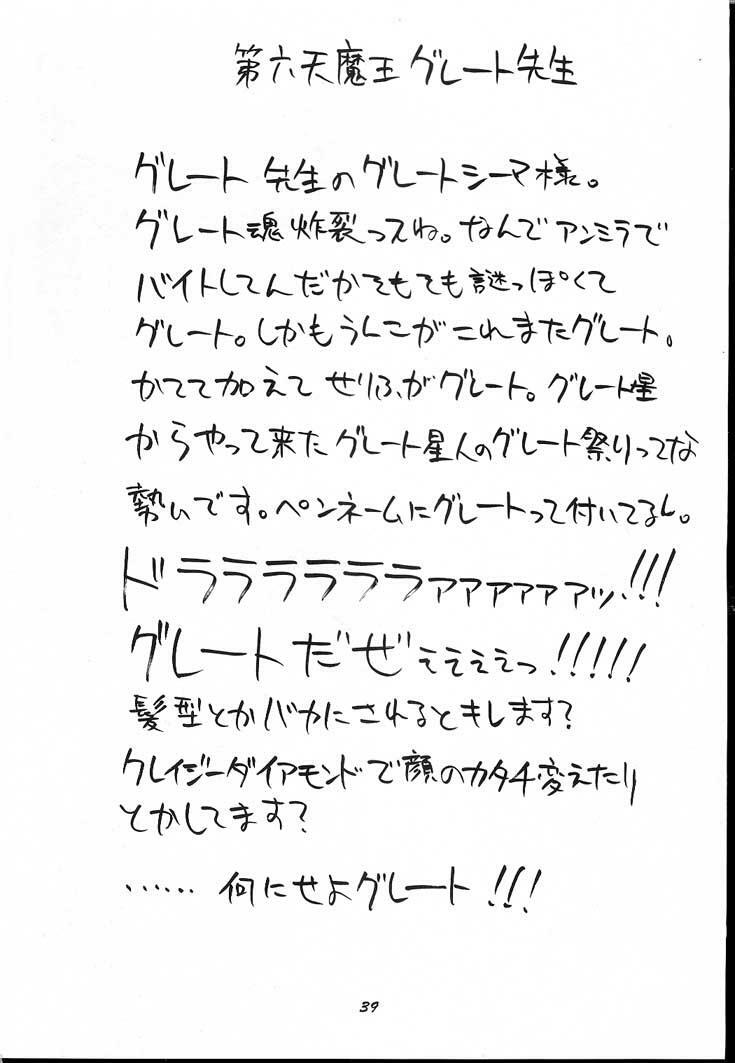 第六天魔王グレート先生
グレート先生のグレートシーマ様。
グレート魂炸裂っスね。なんでアンミラで
バイトしてんだかてもても謎っぽくて
グレート。しかもうんこがこれまたグレート。
かてて加えてせりふがグレート。グレート星
からやって来たグレート星人のグレート祭りってな
勢いです。ペンネームにグレートって付いてるし。
ドラララララララァァァァァァッ!!!
グレートだぜぇぇぇぇっ!!!!!
髪型とかバカにされるとキレます?
クレイジーダイアモンドで顔のカタチ変えたり
とかしてます?
‥‥‥何にせよグレート!!!
39